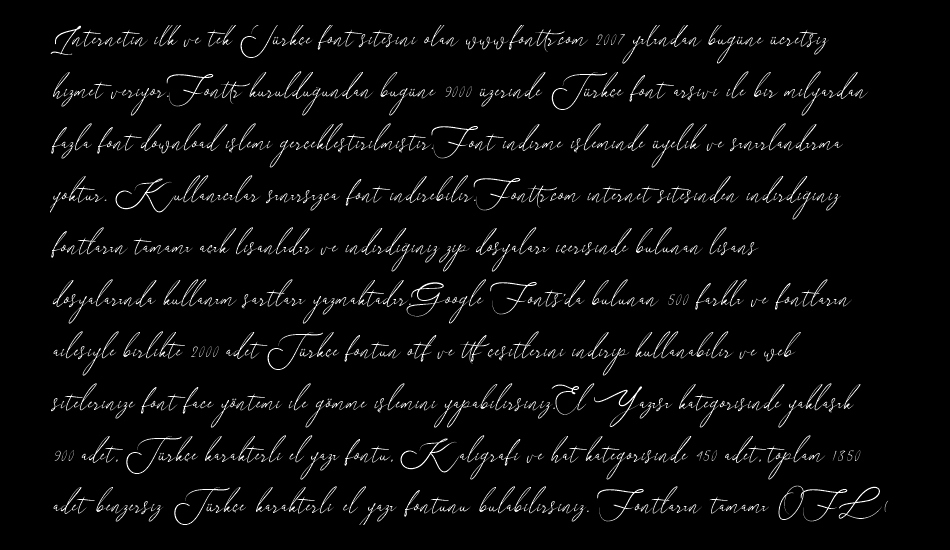 Internetin ilk ve tek Türkçe font sitesini olan www.fonttr.com 2007 yılından bugüne ücretsiz
hizmet veriyor.Fonttr kurulduğundan bugüne 9000 üzerinde Türkçe font arşivi ile bir milyardan
fazla font download işlemi gerçekleştirilmiştir.Font indirme işleminde üyelik ve sınırlandırma
yoktur. Kullanıcılar sınırsızca font indirebilir.Fonttr.com internet sitesinden indirdiğiniz
fontların tamamı açık lisanlıdır ve indirdiğiniz zip dosyaları içerisinde bulunan lisans
dosyalarında kullanım şartları yazmaktadır.Google Fonts'da bulunan 500 farklı ve fontların
ailesiyle birlikte 2000 adet Türkçe fontun otf ve ttf çeşitlerini indirip kullanabilir ve web
sitelerinize font face yöntemi ile gömme işlemini yapabilirsiniz.El Yazısı kategorisinde yaklaşık
900 adet, Türkçe karakterli el yazı fontu, Kaligrafi ve hat kategorisinde 450 adet, toplam 1350
adet benzersiz Türkçe karakterli el yazı fontunu bulabilirsiniz. Fontların tamamı OFL